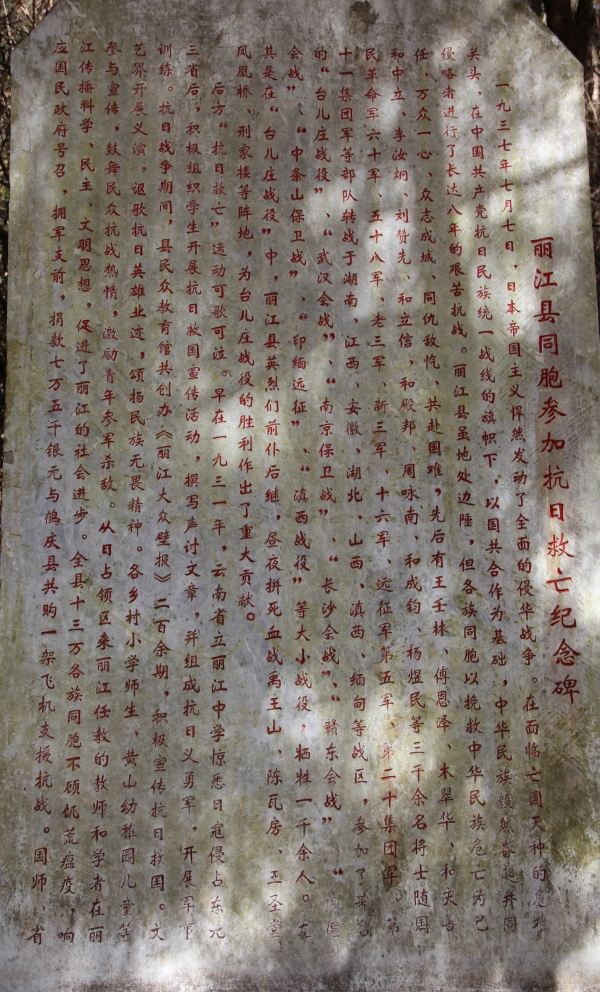 丽江县同胞参加抗日救亡纪念碑
一九三七年七月七日，日本帝国主义悍然发动了全面的侵华战争。在面临亡国灭种的危难
关头，在中国共产党抗日民族统一战线的旗帜下，以国共合作为基础，中华民族毅然奋起共同
侵略者进行了长达八年的艰苦抗战。丽江县虽地处边陲，但各族同胞以挽救中华民族危亡为己
任，万众一心、众志成城、同仇敌忾、共赴国难，先后有王壬林、傅恩泽、木翠华、和庆
和中立、李汝炯、刘赞先、和立信、和殿邦、周咏南、和成钧、杨煜民等三千余名将士随国
民革命军六十军、五十八军、老三军、新三军、十六军、远征军第五军、第二十集团军、第
十一集团军等部队转战于湖南、江西、安徽、湖北、山西、滇西、缅甸等战区，参加了著名
的“台儿庄战役”、“武汉会战”、“南京保卫战”、“长沙会战”、“赣东会战”、“
会战”、“中条山保卫战”、“印缅远征”、“滇西战役”等大小战役，牺牲一千余人。尤
其是在“台儿庄战役”中，丽江县英烈们前仆后继，昼夜拼死血战禹王山、陈瓦房、王圣堂、
凤凰桥、邢家楼等阵地，为台儿庄战役的胜利作出了重大贡献。
后方“抗日救亡”运动可歌可泣。早在一九三一年，云南省立丽江中学惊悉日寇侵占东北
三省后，积极组织学生开展抗日救国宣传活动，撰写声讨文章，并组成抗日义勇军，开展军事
训练。抗日战争期间，县民众教育馆共创办《丽江大众壁报》二百余期，积极宣传抗日救国。文
艺界开展义演，讴歌抗日英雄业迹，颂扬民族无畏精神。各乡村小学师生、黄山幼稚园儿童等
参与宣传，鼓舞民众抗战热情，激励青年参军杀敌。从日占领区来丽江任教的教师和学者在丽
江传播科学、民主、文明思想，促进了丽江的社会进步。全县十三万各族同胞不顾饥荒瘟疫，响
应国民政府号召，拥军支前，捐款七万五千银元与鹤庆县共购一架飞机支援抗战。国师、省